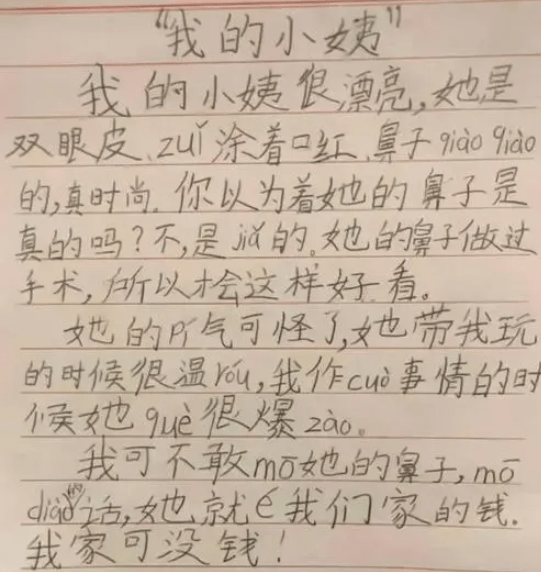 “我的小姨”
我的小姨很漂亮,她是
双眼皮、zuǐ涂着口红、鼻子qiào qiào
的,真时尚. 你以为着她的鼻子是
真的吗?不,是jiǎ的。她的鼻子做过
手术,所以才会这样好看。
她的pí气可怪了,她带我玩
的时候很温róu,我作cuò事情的时
候她què很爆zào。
我可不敢mō她的鼻子,mō
diào的话,她就é我们家的钱.
我家可没钱!